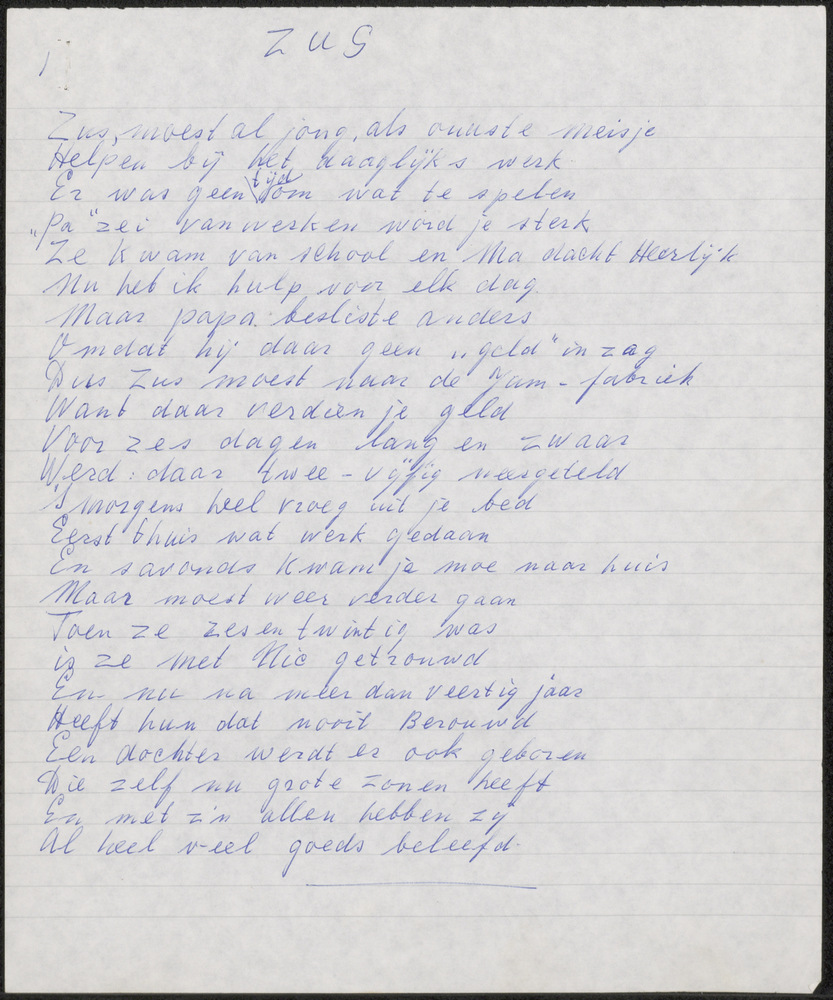 ZUS
Zus, moest al jong, als oudste meisje
Helpen bij het daaglijks werk.
Er was geen tijd om wat te spelen
„Pa" zei van werken word je sterk
Ze kwam van school en Ma dacht Heerlijk
Nu heb ik hulp voor elk dag.
Maar papa besliste anders
Omdat hij daar geen „geld" in zag
Dus Zus moest naar de Jam-fabriek
Want daar verdien je geld
Voor zes dagen lang en zwaar
Werd: daar twee-vijftig neergeteld
's morgens heel vroeg uit je bed
Eerst thuis wat werk gedaan
En savonds kwam je moe naar huis
Maar moest weer verder gaan
Toen ze zesentwintig was
is ze met Nic getrouwd
En nu na meer dan veertig jaar
Heeft hun dat nooit Berouwd
Een dochter werdt er ook geboren
Die zelf nu grote zonen heeft
En met z'n allen hebben zij
Al heel veel goeds beleefd.